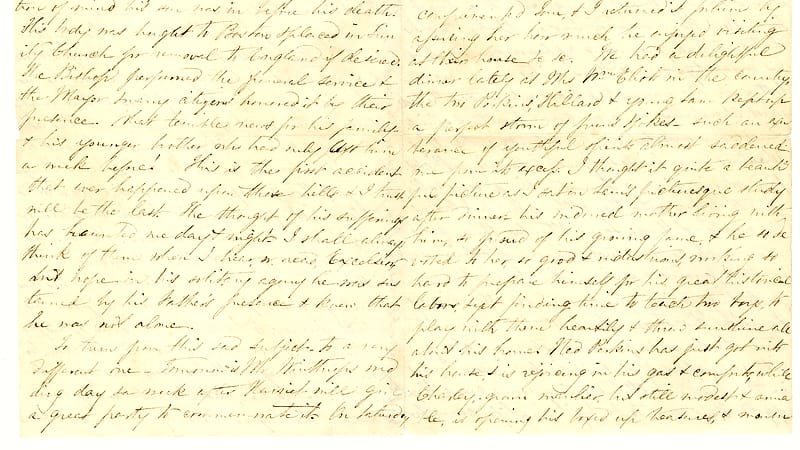 tion of mind his son was in before his death.
His body was brought to Boston & placed in Trin
ity Church for removal to England if desired.
The Bishop performed the funeral service &
the Mayor & many citizens honored it by their
presence. What terrible news for his family
& his younger brother who had only left him
a week before! This is the first accident
that ever happened upon those hills & I trust
will be the last. The thought of his sufferings
has haunted me day & night. I shall always
think of them when I hear, or read, Excelsior
and hope in his solitary agony he was sus
tained by his Father's presence & knew that
he was not alone.
So turn from this sad subject to a very
different one - Tomorrow is Mr Winthrop's wed
ding day & a week after Harriet will give
a great party to commemorate it. On Saturday
complimented some, & I returned it further by
assuring her how much he enjoyed visiting
at their house &c &c. We had a delightful
dinner lately at Mrs Wm Eliot's in the country,
the two Perkins', Hillard & young Sam
a perfect storm of fun & jokes - such an exu
berance of youthful spirits almost saddened
me from its excess. I thought it quite a beauti
ful picture as I sat in Sam's picturesque study
after dinner. his widowed mother living with
him, so proud of his growing fame, & he so de
voted to her so good & industrious, working so
hard to prepare himself for his great historical
labors, yet finding time to teach two boys, to
play with them heartily & throw sunshine all
about his home. Ned Perkins has just got into
his house & is rejoicing in his gas & comforts, while
Charley, manlier, but still modest & amia
ble, is opening his boxed up treasures, &